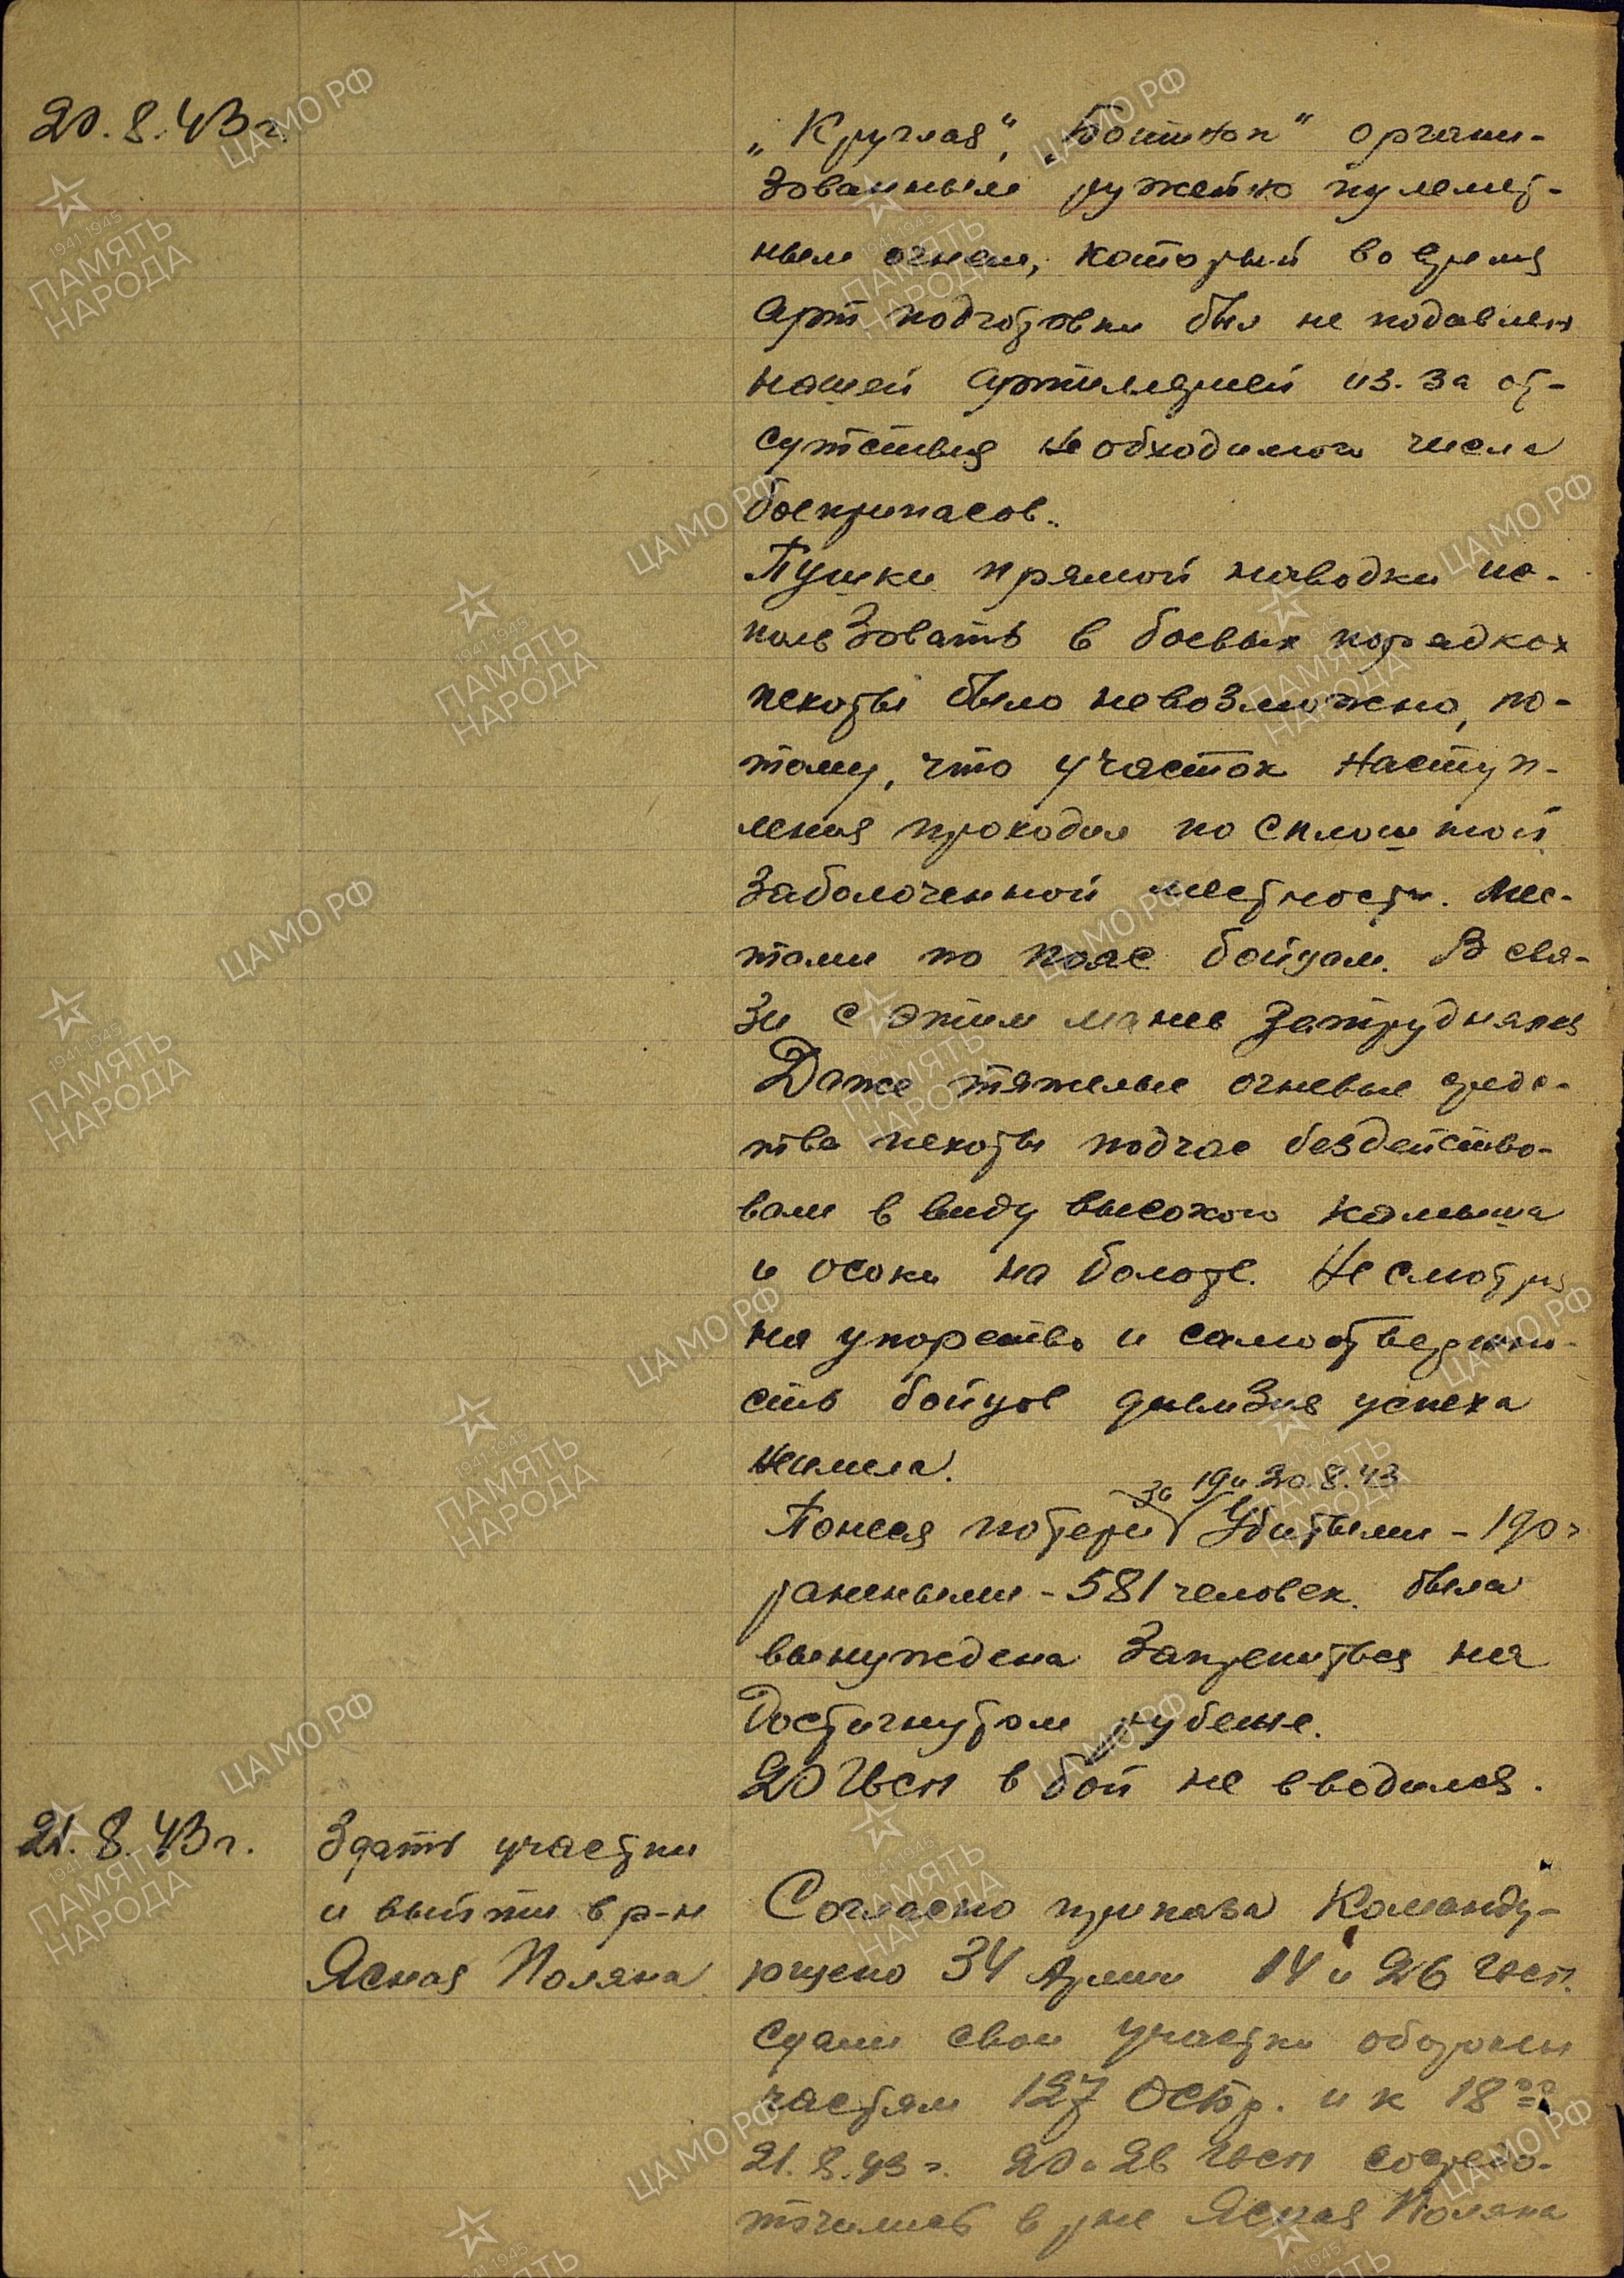 20.8.43г.
„Круглая“, „Ботинок“ органи-
зованным ружейно пулемет-
ным огнем, который во время
арт подготовки был не подавлен
нашей артиллерией из-за от-
сутствия необходимого числа
боеприпасов.
Пушки прямой наводки ис-
пользовать в боевых порядках
пехоты было невозможно, по-
тому, что участок наступ-
ления проходил по сплошной
заболоченной местности. Мес-
тами по пояс бойцам. В свя-
зи с этим манев затруднялся
Даже тяжелые огневые средс-
тва пехоты подчас бездейство-
вали в виду высокого камыша
и осоки на болоте. Несмотря
на упорство и самоотвержено-
сть бойцов дивизия успеха
неимела.
за 19 и 20.8.43
Понеся потери Убитыми - 190
ранеными - 581 человек. была
вынуждена закрепиться на
достигнутом рубеже.
20 Гвсп в бой не вводился.
21.8.43г.
Здать участки
и выйти в р-н
Ясная Поляна
Согласно приказа Команду-
ющего 34 Армии 14 и 26 гвсп.
сдали свои участки обороны
частям 127 ОСбр. и к 18
21.8.43г. 20 и 26 гвсп сосредо-
точились в р-не Ясная Поляна
ЦАМО РФ
1941 1945
ПАМЯТЬ
НАРОДА